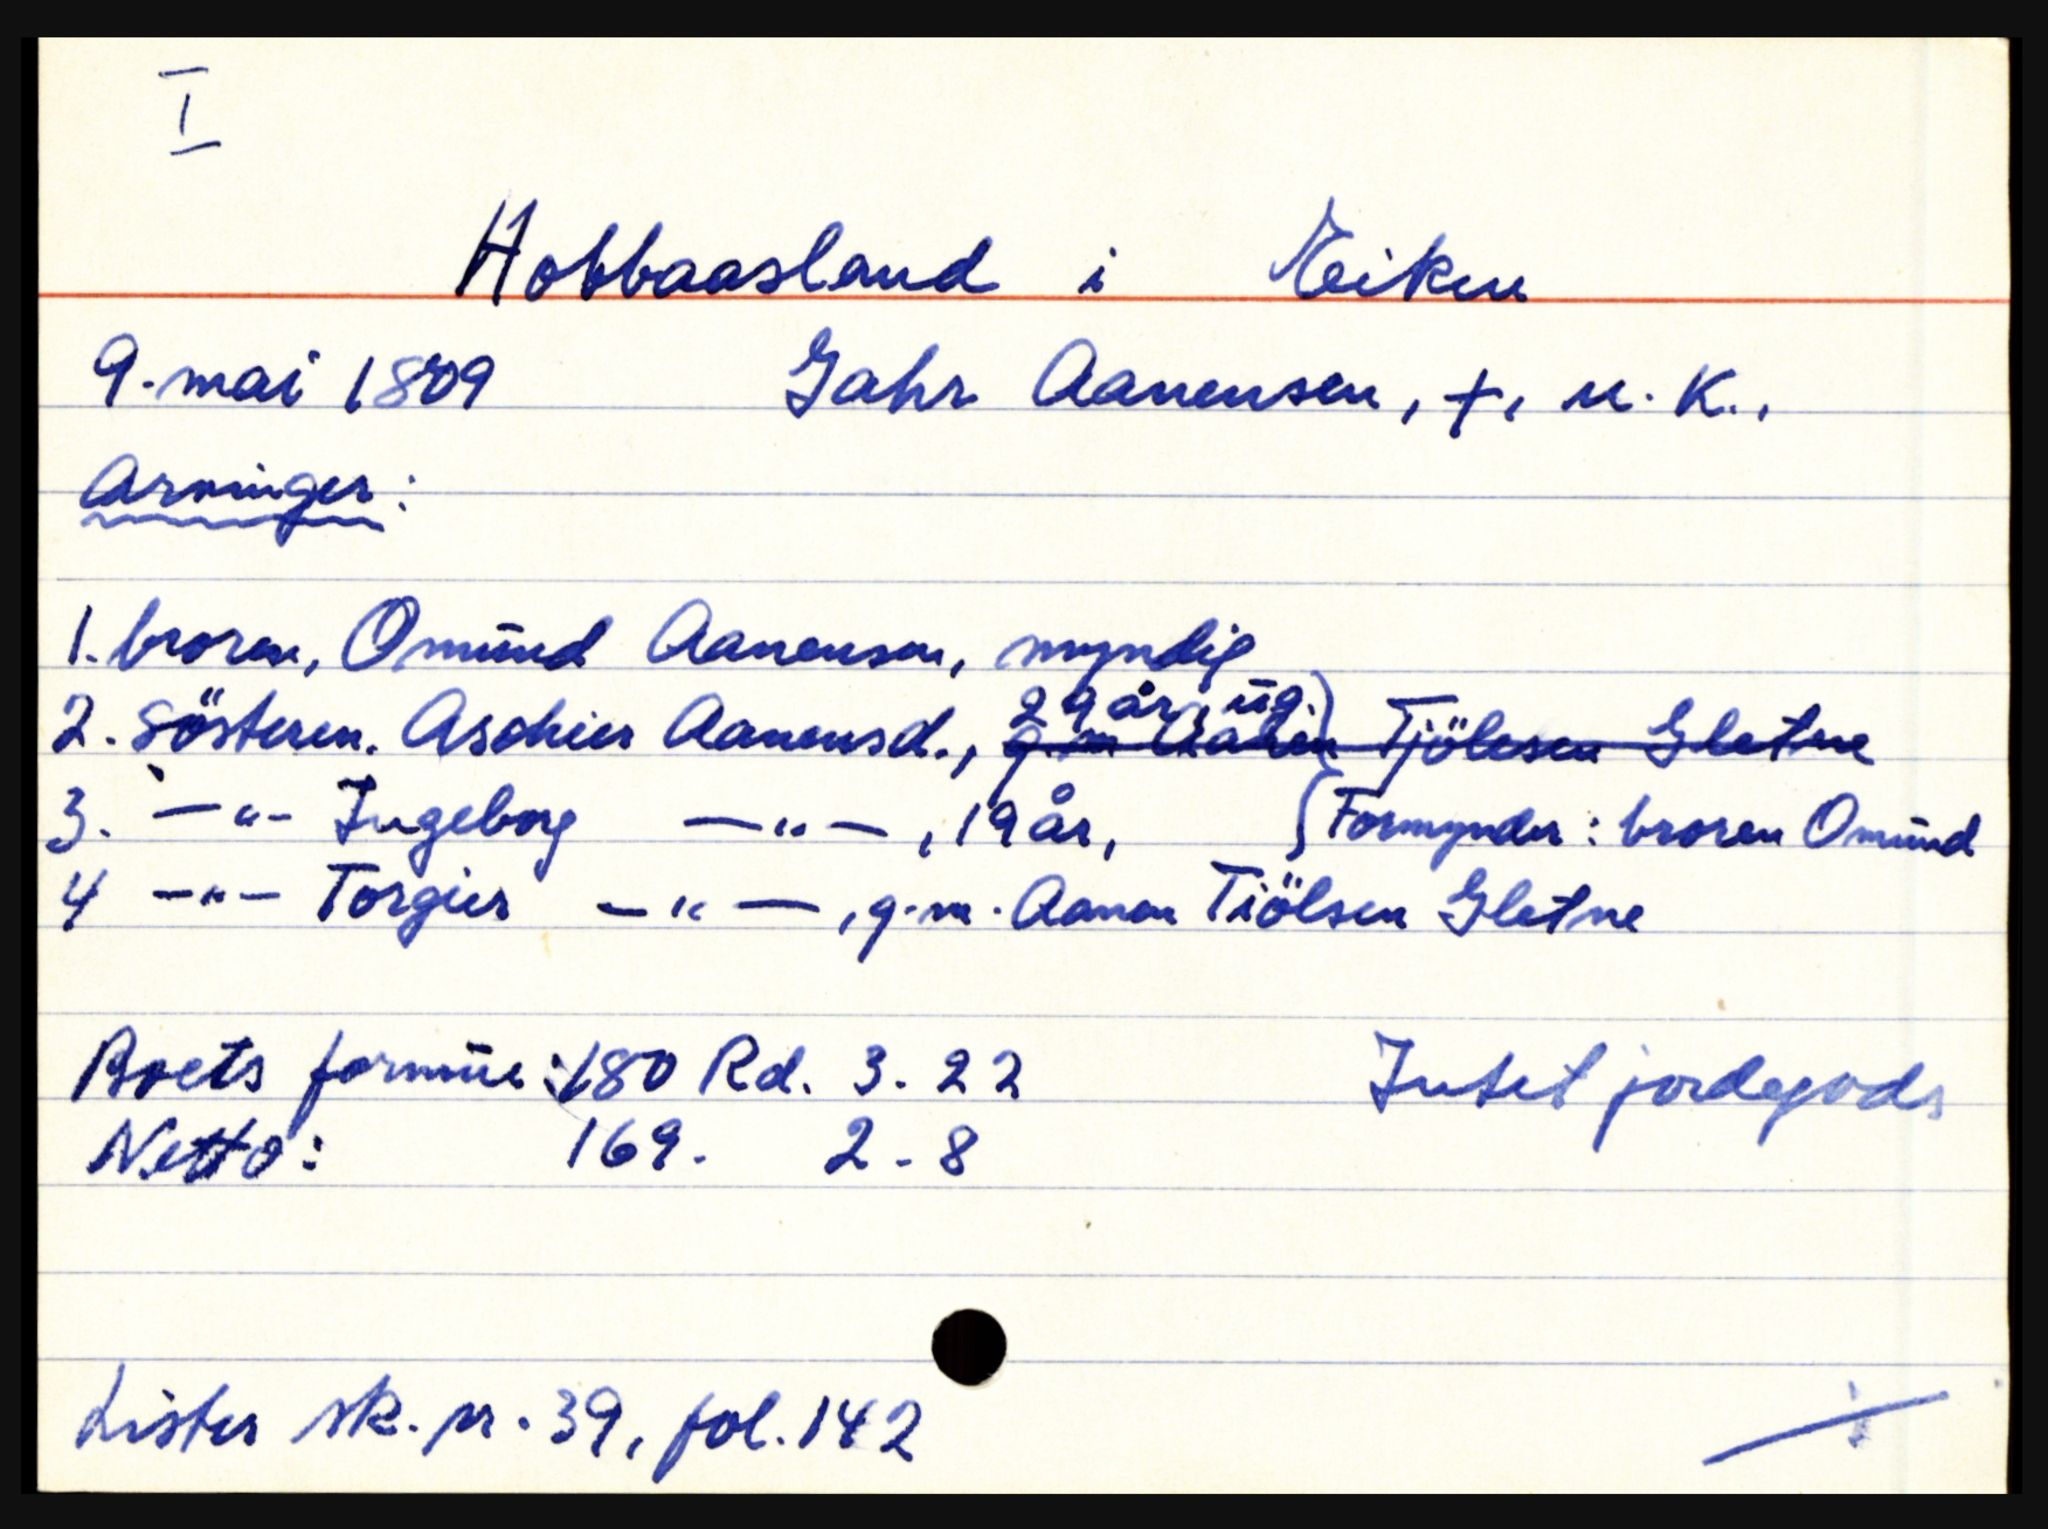 I
Hobbaasland i Eiken
9. mai 1809 Gahr Aanensen, +, u. K.,
Arvinger:
1. broren, Omund Aanensen, myndig
29 år, ug.
2. Søsteren. Aschier Aanensd., g.m Aanen Tjölesen Gletne
3. —"— Ingeborg —"—, 19 år, Formynder: broren Omund
4 —"— Torgier —"—, g.m. Aanen Tiölsen Gletne
Boets formue: 180 Rd. 3. 22 Intet jordegods
Netto: 169. 2 - 8
Lister sk. pr. 39, fol. 142